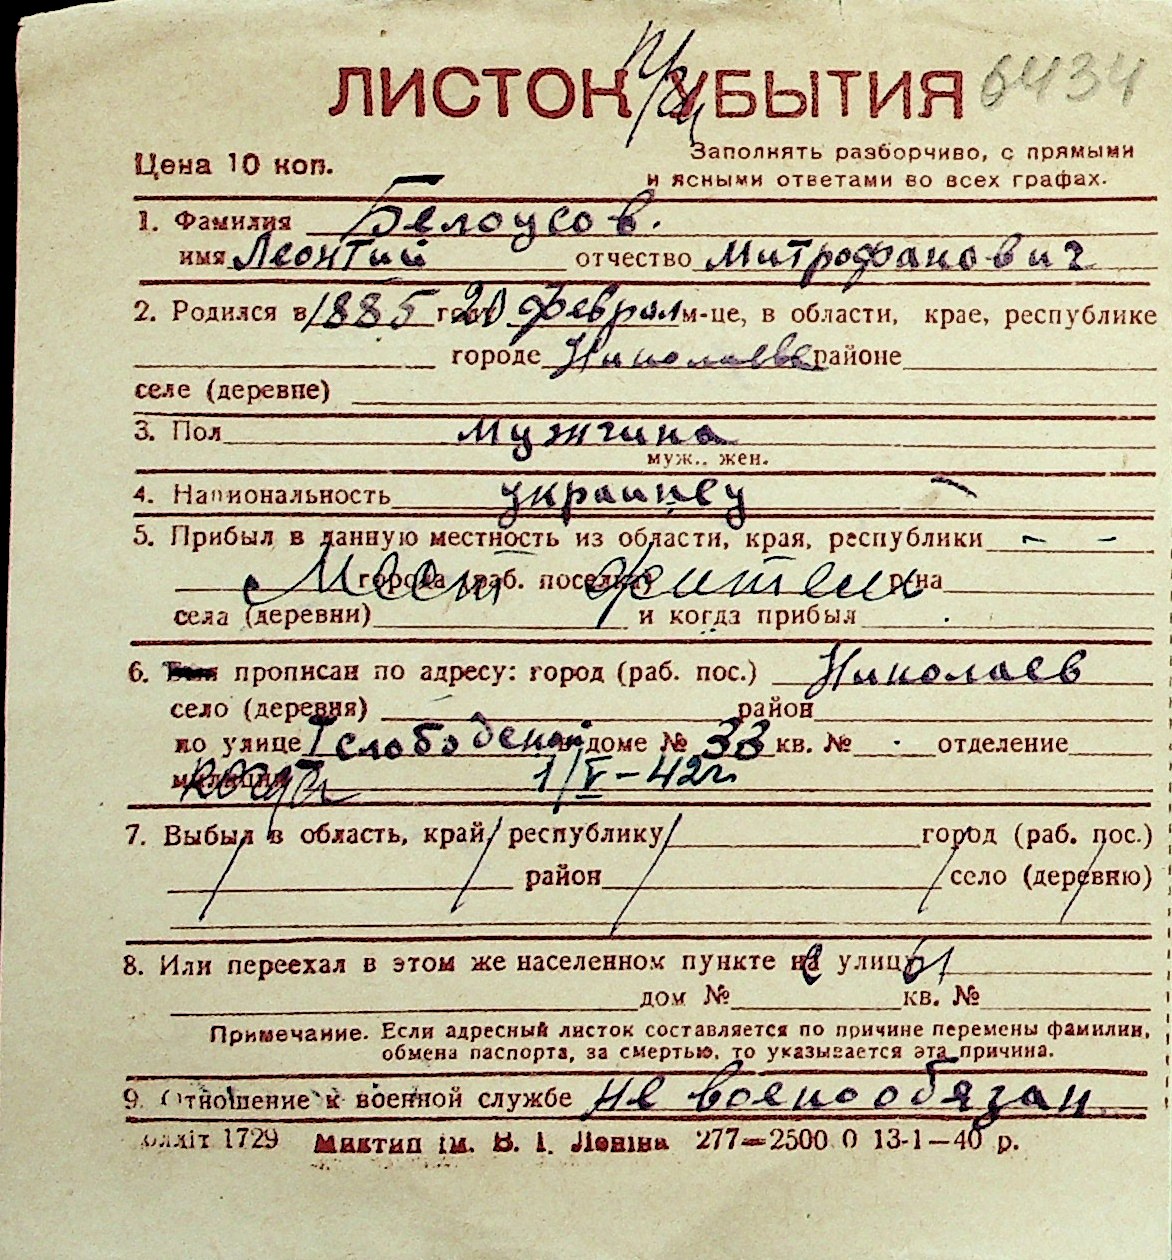 ЛИСТОК УБЫТИЯ 6434
Цена 10 коп.
Заполнять разборчиво, с прямыми
и ясными ответами во всех графах.
1. Фамилия Белоусов.
имя Леонтий отчество Митрофанович
2. Родился в 1885 году 20 феврал м-це, в области, крае, республике
городе Николаеве районе
селе (деревне)
3. Пол мужчина
муж.. жен.
4. Национальность украинец
5. Прибыл в данную местность из области, края, республики - -
города (раб. поселка) р-на
Мест житель
села (деревни) и когда прибыл
6. Был прописан по адресу: город (раб. пос.) Николаев
село (деревня) район
по улице I слободская в доме № 33 кв. № - отделение
милиции когда 1/V-42 г.
7. Выбыл в область, край, республику город (раб. пос.)
район село (деревню)
8. Или переехал в этом же населенном пункте на улицу
дом № кв. №
Примечание. Если адресный листок составляется по причине перемены фамилии,
обмена паспорта, за смертью, то указывается эта причина.
9. Отношение к военной службе не воено обязан
1729 Миктип ім. В. І. Леніна 277—2500 0 13-1—40 р.